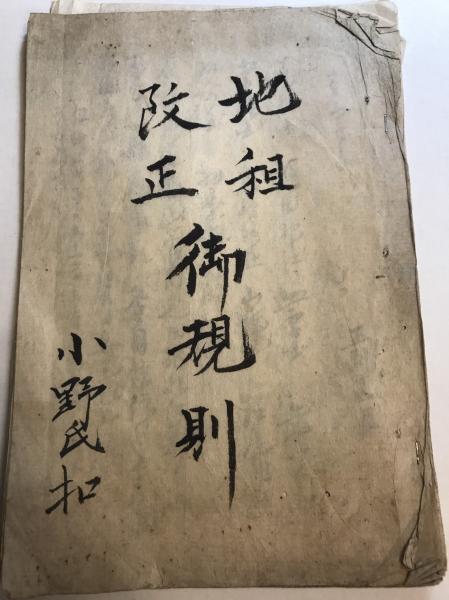 地租
改正
御規則
小野氏扣